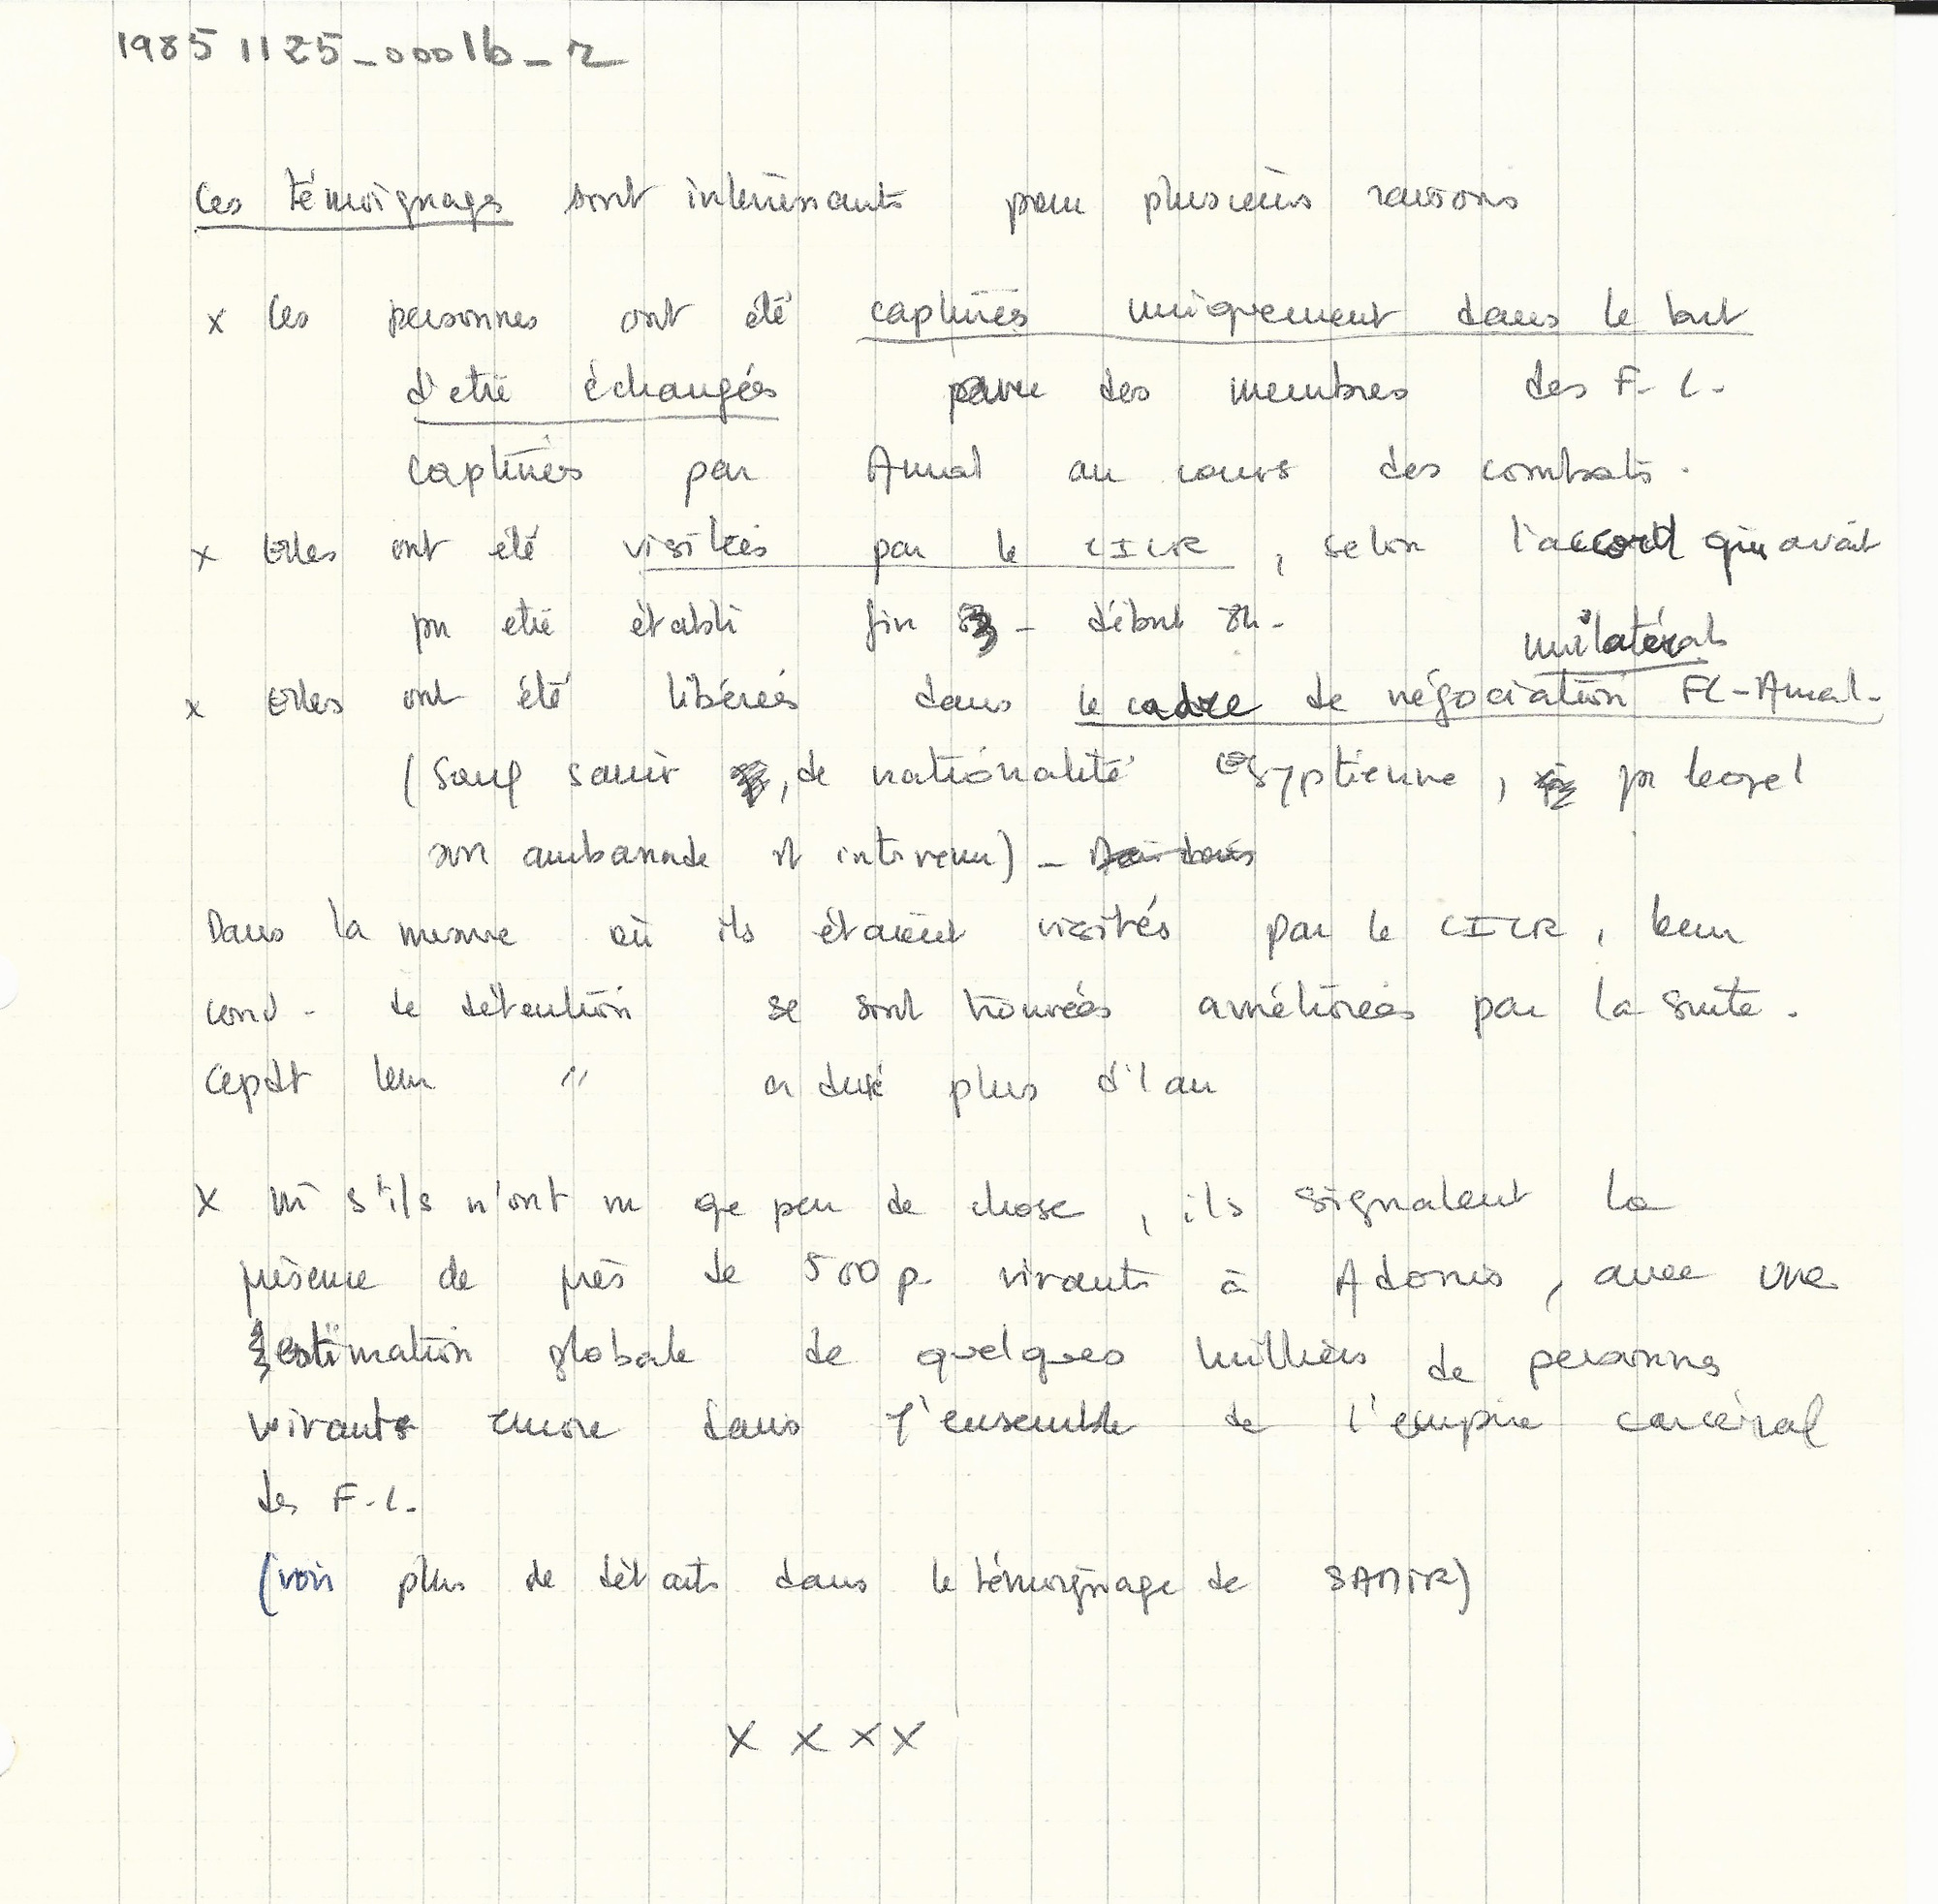 19851125_0001b_r
Ces témoignages sont intéressants pour plusieurs raisons
x Ces personnes ont été capturées uniquement dans le but
d'etre échangées avec des membres des F.L.
capturés par Amal au cours des combats.
x Elles ont été visitées par le CICR, selon l'accord qui avait
pu etre établi fin 83 - début 84.
unilatérals
x Elles ont été libérées dans le cadre de négociation FL-Amal.
(sauf samir , de nationalité egyptienne, pr leqel
son ambassade est intervenu) -
Dans la mesure où ils étaient visités par le CICR, leur
cond. de détention se sont trouvées améliorées par la suite.
Cepdt leur " a duré plus d'1 an
x m s'ils n'ont vu qe peu de chose, ils signalent la
présence de près de 500 p. vivants à Adonis, avec une
estimation globale de quelques milliers de personnes
vivants encore dans l'ensemble de l'empire carcéral
des F.L.
(voir plus de détails dans le témoignage de SAMIR)
X X X X